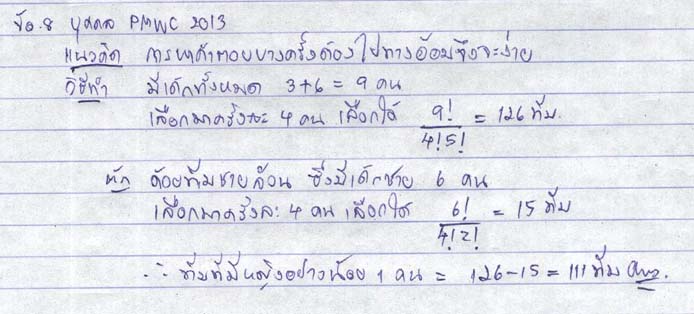 ข้อ.8 บุคคล PMWC 2013
แนวคิด การหาคำตอบบางครั้งต้องไปทางอ้อมจึงจะง่าย
วิธีทำ มีเด็กทั้งหมด 3+6 = 9 คน
เลือกมาครั้งละ 4 คน เลือกได้ 9!/4!5! = 126 ทีม.
หัก ด้วยทีมชายล้วน ซึ่งมีเด็กชาย 6 คน
เลือกมาครั้งละ 4 คน เลือกได้ 6!/4!2! = 15 ทีม
∴ ทีมที่มีหญิงอย่างน้อย 1 คน = 126-15 = 111 ทีม Ans.